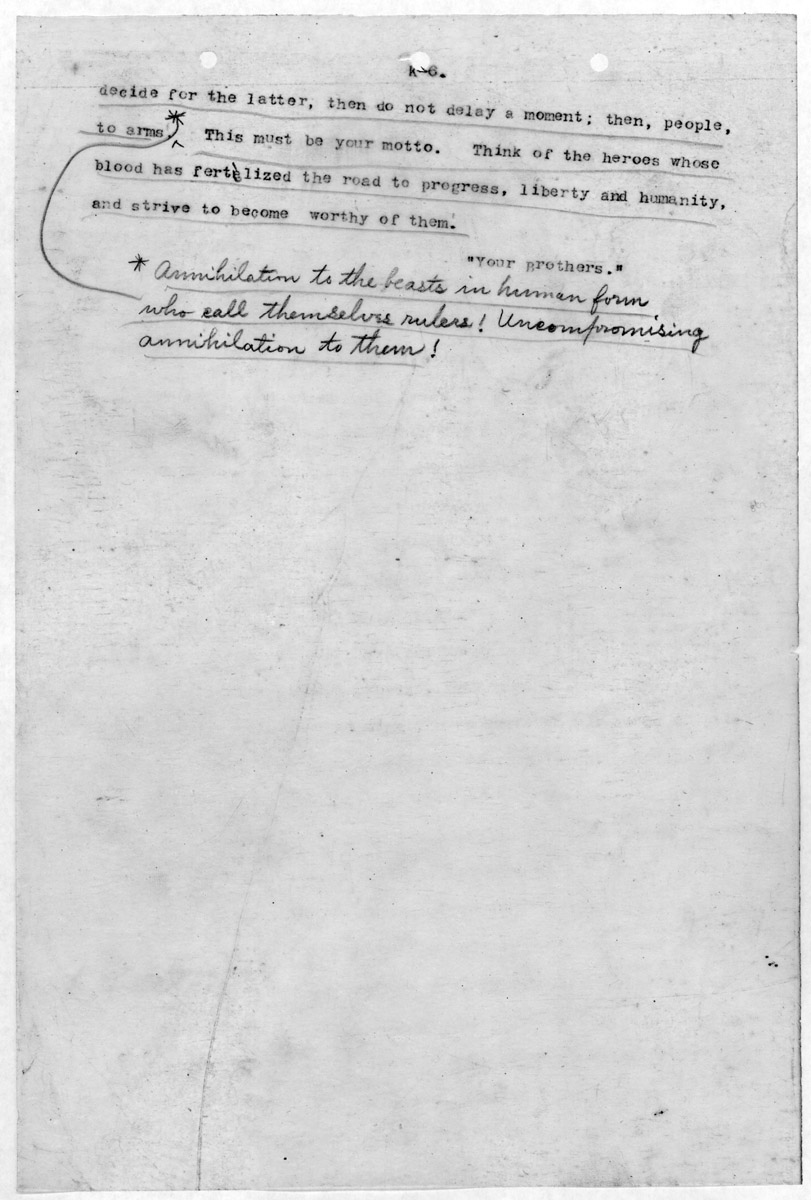 k-6.
decide for the latter, then do not delay a moment; then, people,
to arms.* ‸ This must be your motto. Think of the heroes whose
blood has fertilized the road to progress, liberty and humanity,
and strive to become worthy of them."
"Your Brothers."
* Annihilation to the beasts in human form
who call themselves rulers! Uncompromising
annihilation to them!